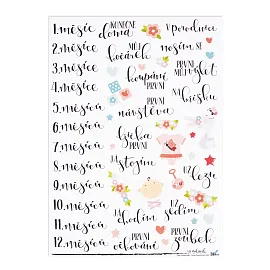 1. měsíc
2. měsíce
3. měsíce
4. měsíce
5. měsíců
6. měsíců
7. měsíců
8. měsíců
9. měsíců
10. měsíců
11. měsíců
12. měsíců
KONEČNĚ doma
V porodnici
MŮJ kočárek
nosím se
koupání PRVNÍ
PRVNÍ MŮJ výlet
PRVNÍ písnička
NA hřišti
kycka PRVNÍ
JÁ stojím
UŽ lezu
JÁ chodím
UŽ sedím
PRVNÍ
PRVNÍ zoubek